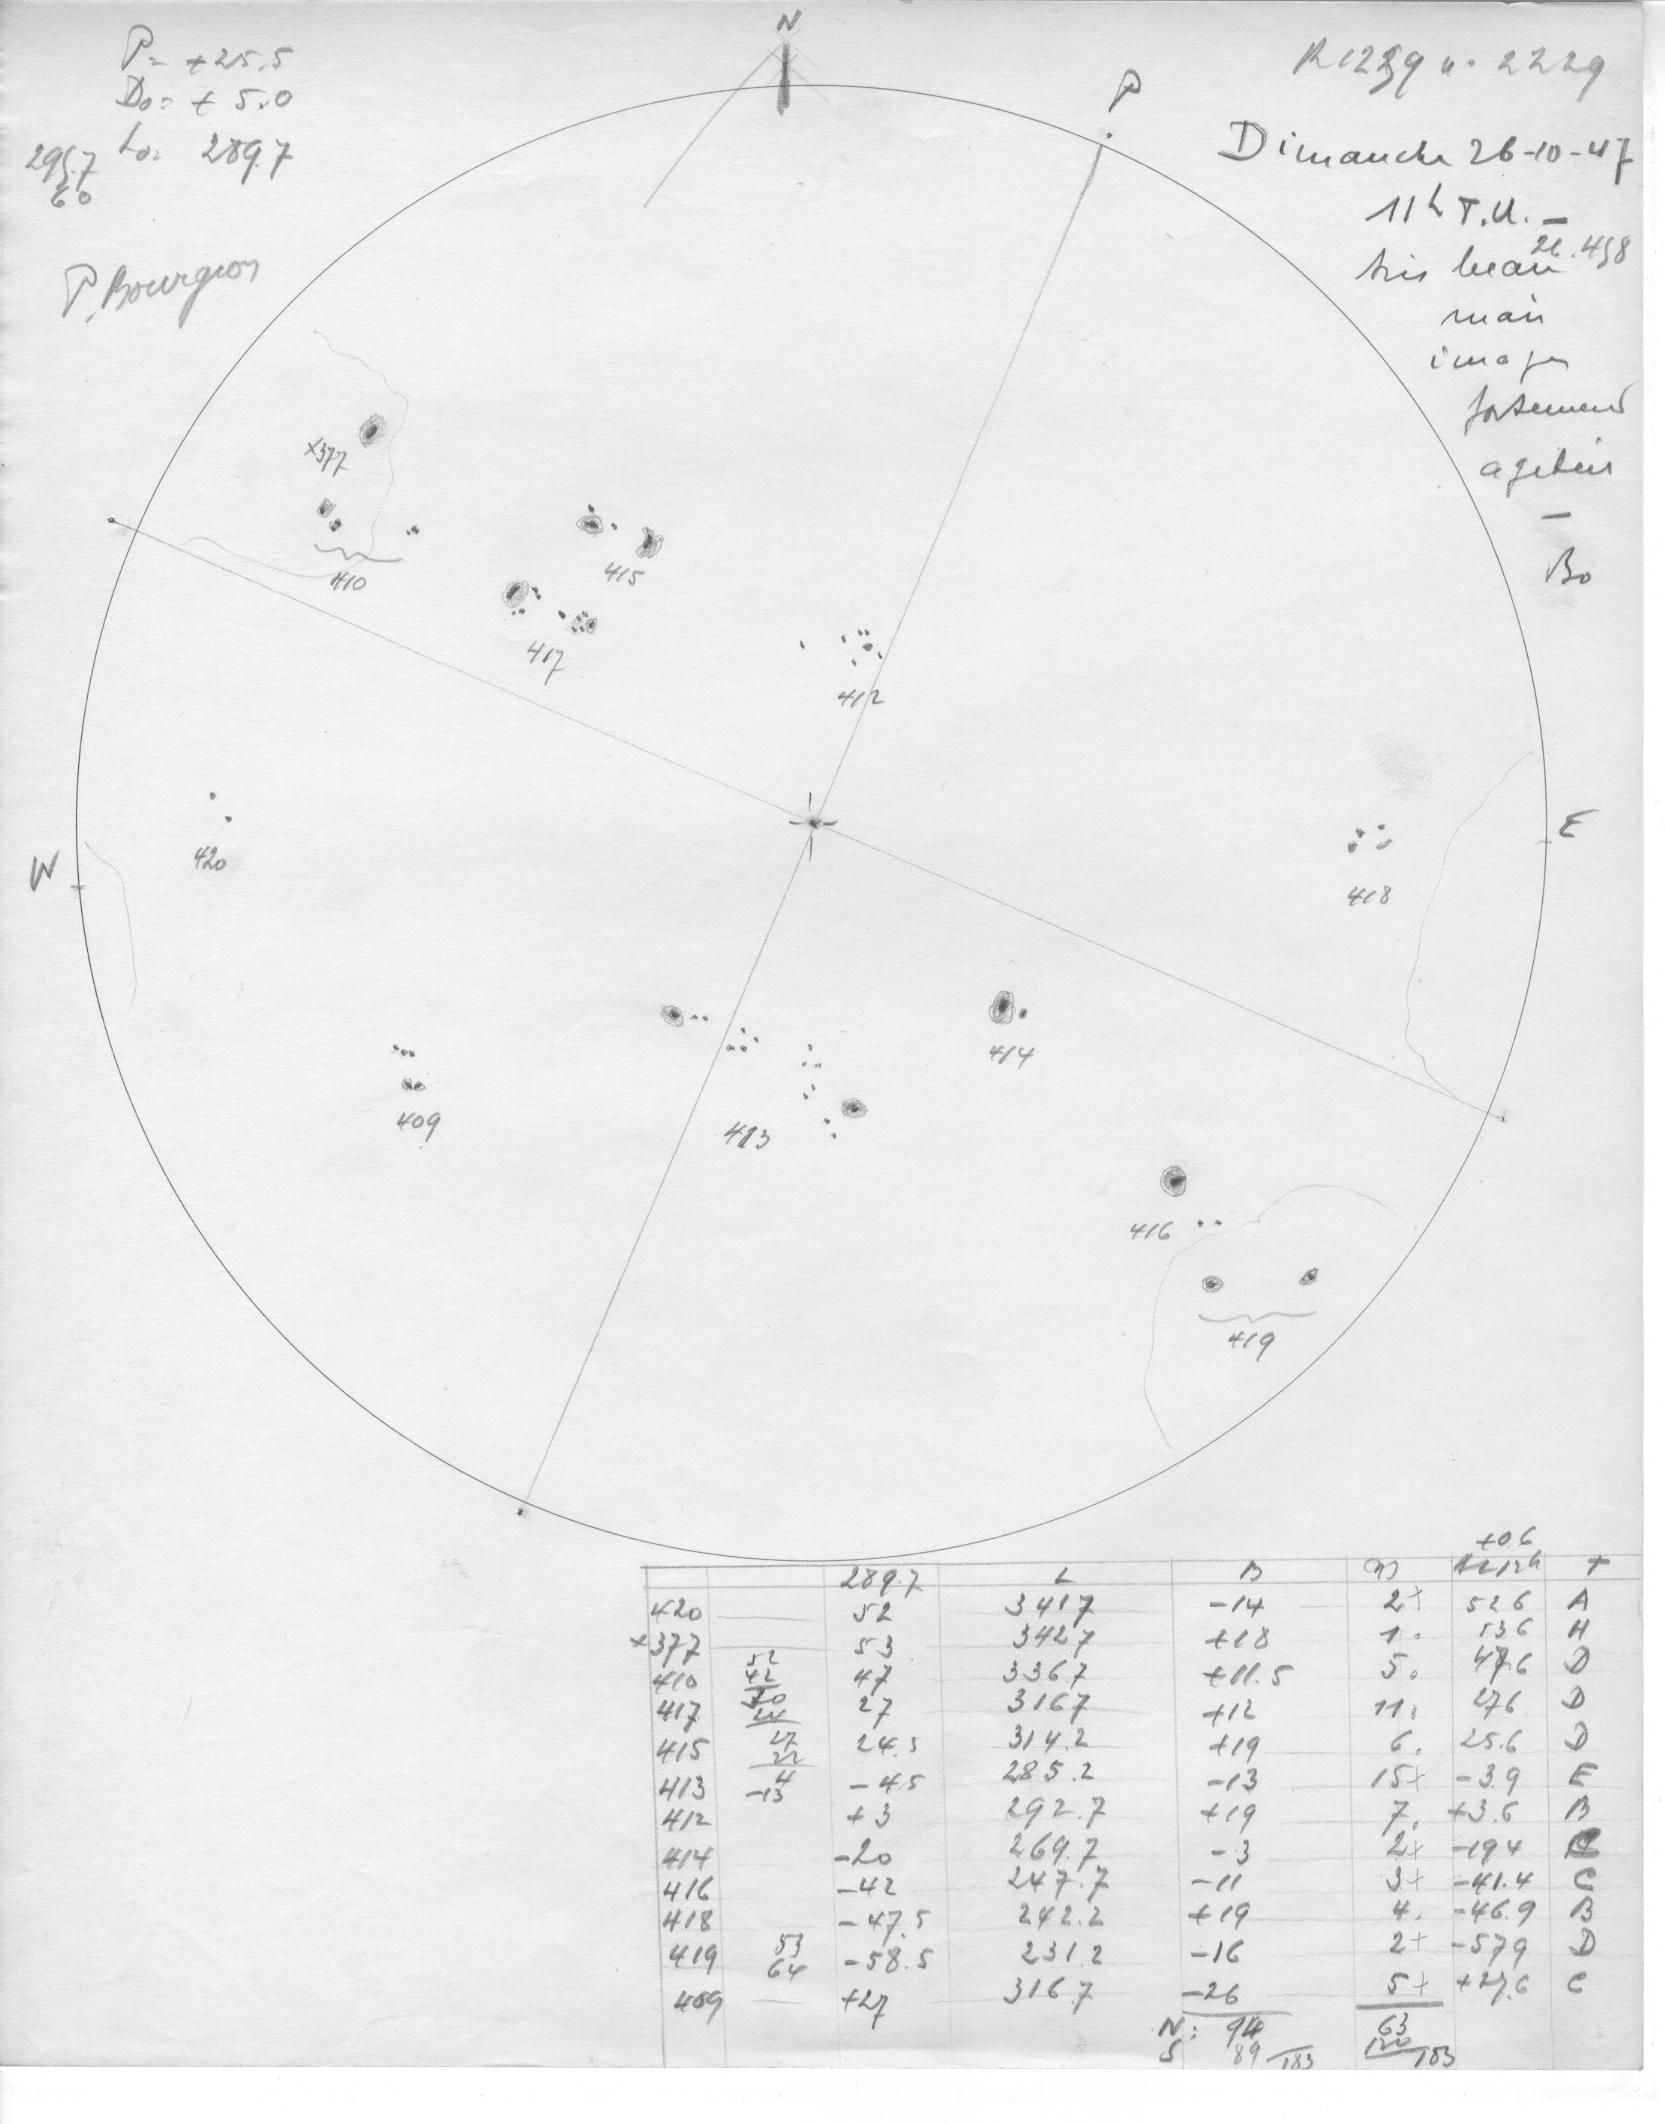 N
P= +25.5
Do= + 5.0
Lo= 289.7
60
P. Bourgeois
P
Dimanche 26-10-47
11h T.U. —
26.458
très beau
mais
images
fortement
agitées
—
Bo
x377
410
415
417
412
420
W
E
418
409
413
414
416
419
+0.6
289.7 L B T
420 52 341.7 -14 2+ 52.6 A
x377 53 342.7 +18 1. 53.6 H
410 52 42 47 336.7 +11.5 5. 47.6 D
417 30 24 27 316.7 +12 11. 27.6 D
415 27 22 24.5 314.2 +19 6. 25.6 D
413 4 -13 -4.5 285.2 -13 15+ -3.9 E
412 +3 292.7 +19 7. +3.6 B
414 -20 269.7 -3 2+ -19.4
416 -42 247.7 -11 3+ -41.4 C
418 -47.5 242.2 +19 4. -46.9 B
419 53 64 -58.5 231.2 -16 2+ -57.9 D
409 +27 316.7 -26 5+ +27.6 C
N: 94 63
S 89 183 120 183